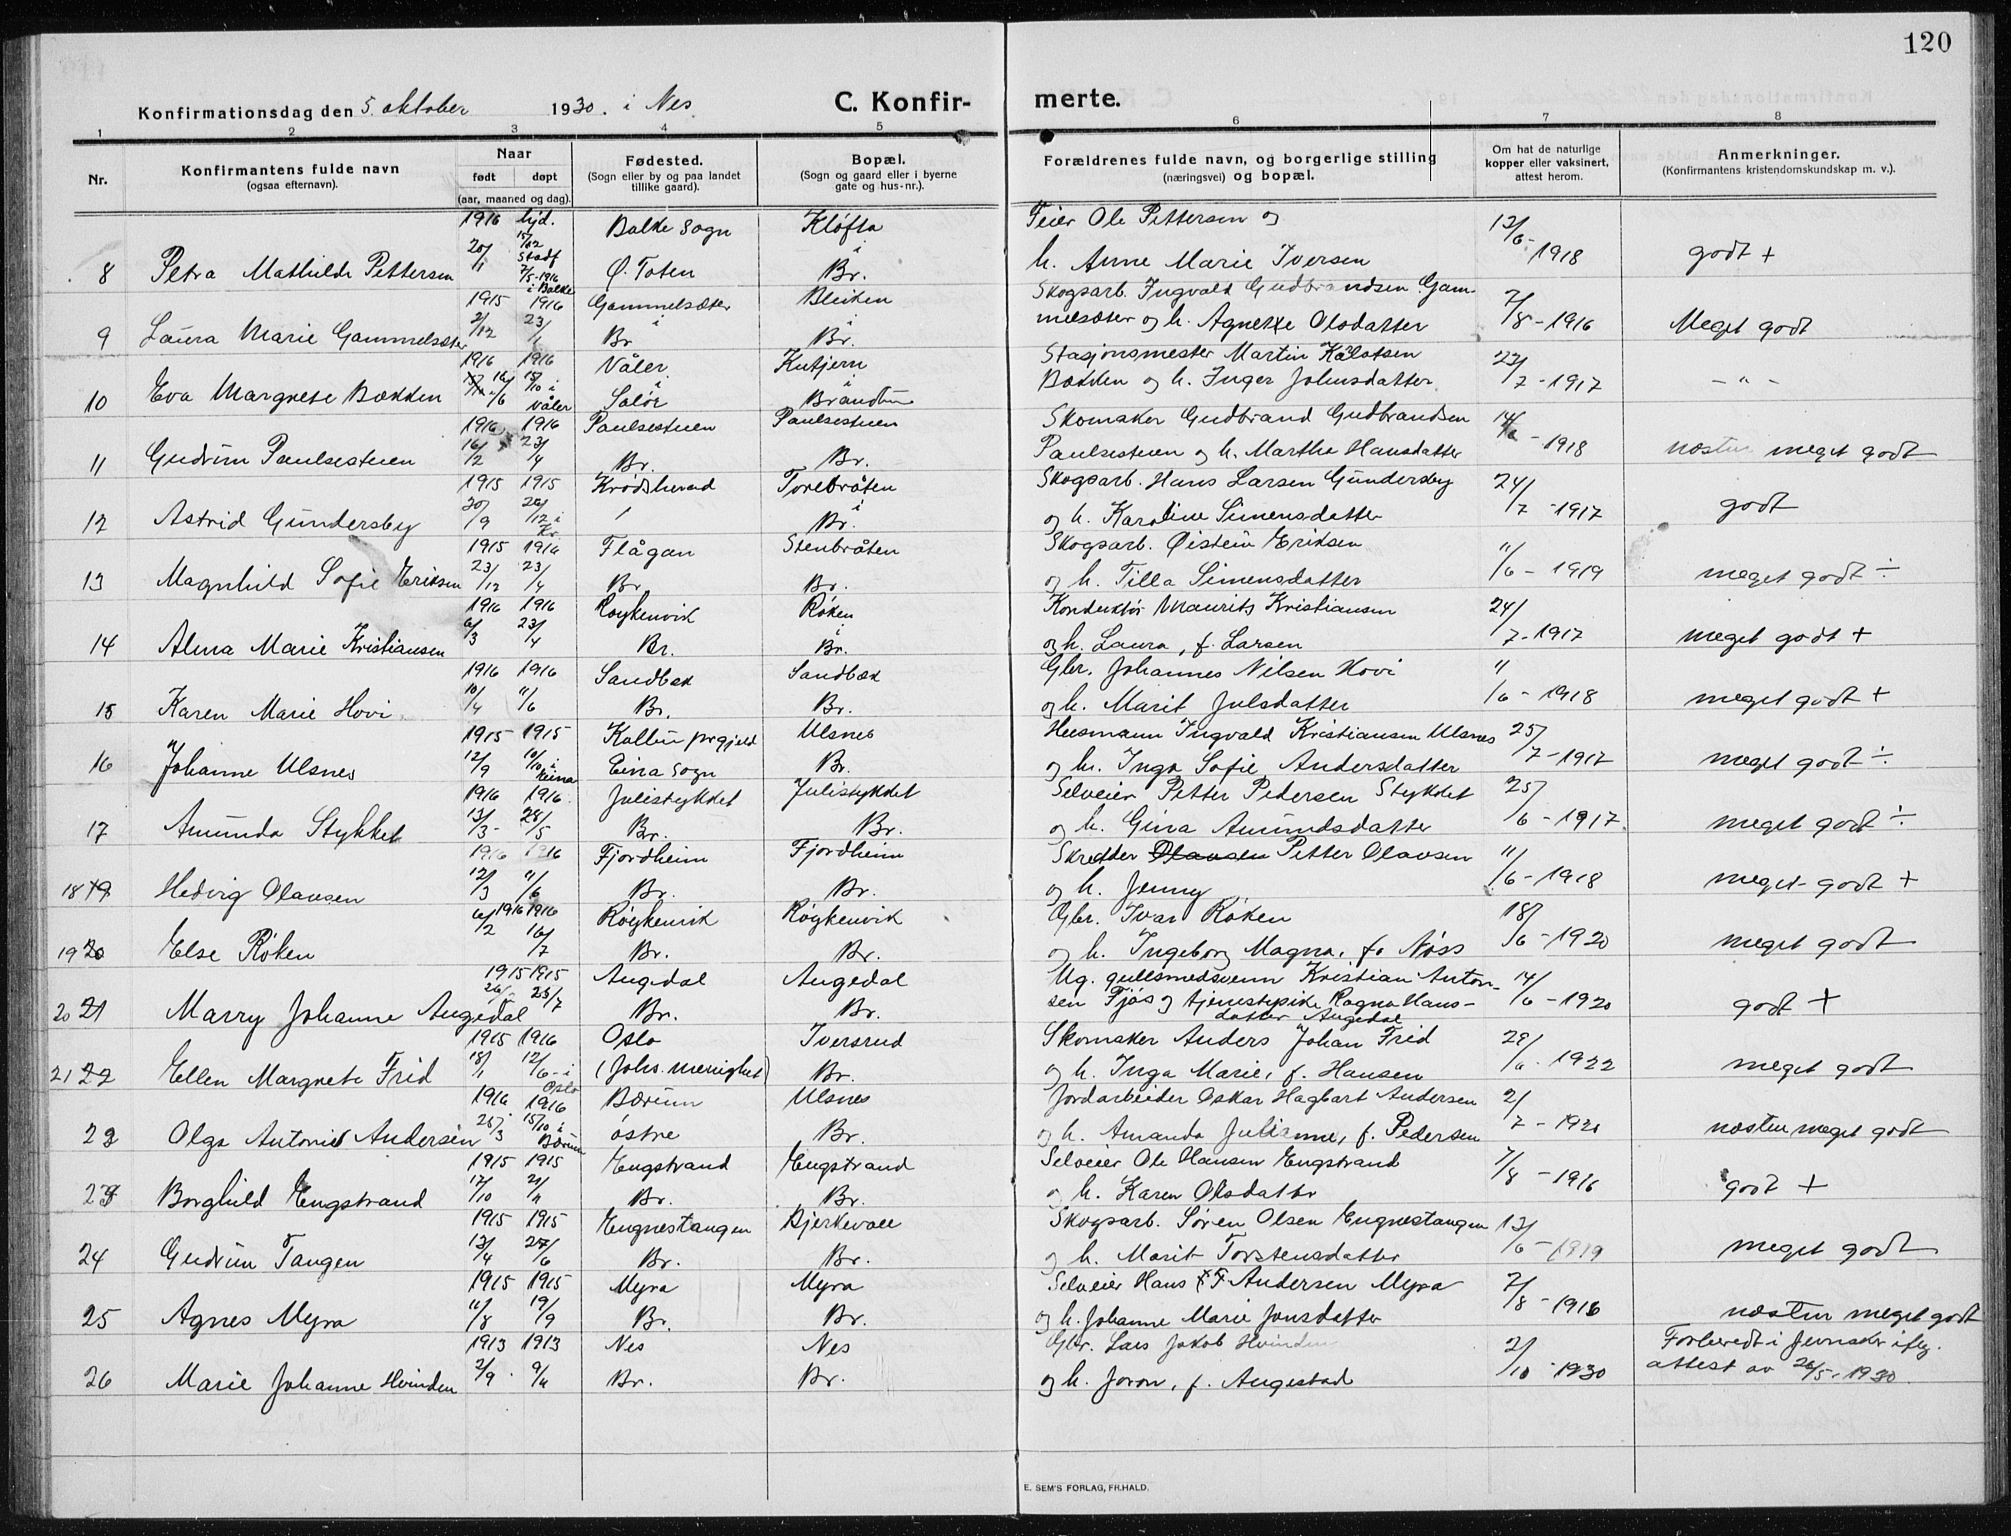 120
Konfirmationsdag den 5. oktober 1930. i Nes C. Konfir- merte.
1 2 3 4 5 6 7 8
Nr. Konfirmantens fulde navn (ogsaa efternavn). Naar født døpt (aar, maaned og dag). Fødested. (Sogn eller by og paa landet tillike gaard). Bopæl. (Sogn og gaard eller i byerne gate og hus-nr.). Forældrenes fulde navn, og borgerlige stilling (næringsvei) og bopæl. Om hat de naturlige kopper eller vaksinert, attest herom. Anmerkninger. (Konfirmantens kristendomskundskap m. v.).
1916 hjd. Balke sogn Kløfta Feier Ole Pettersen og 13/6-
8 Petra Mathilde Pettersen 20/1 15/02 Stadf 7/5-1916 i Balke Ø. Toten i Br. h. Anne Marie Iversen 1918 godt +
1915 1916 Gammelsæter Bleiken Skogsarb. Ingvald Gudbrandsen Gam-
9 Laura Marie Gammelsæter 2/12 23/1 i Br i Br. melsæter og h. Agnethe Olsdatter 7/8-1916 Meget godt
1916 1916 Våler Kutjern Stasjonsmester Martin
10 Eva Margrete Bækken 16/6 15/10 i Våler i Solør i Brandbu Bækken og h. Inger Johnsdatter. 23/7-1917 - " -
1916 1916 Paulsestuen Paulsestuen Skomaker Gudbrand Gudbrandsen
11 Gudrun Paulsestuen 16/2 23/4 Br. Br. Paulsestuen og h. Martha Hansdatter 14/6-1918 næsten meget godt
1915 1915 Krødsherad Torebråten Skogsarb. Hans Larsen Gundersby
12 Astrid Gundersby 30/9 26/12 i Kr. i Br. og h. Karoline Simensdatter 24/7-1917 godt
1915 1916 Flågan Stenbråten Skogsarb. Øistein Eriksen
13 Magnhild Sofie Eriksen 23/12 23/4 Br. Br. og h. Tilla Simensdatter 11/6-1919 meget godt ÷
1916 1916 Roykenvik Røken Konduktør Maurits Kristiansen
14 Alma Marie Kristiansen 6/3 23/4 Br. i Br. og h. Laura, f. Larsen 24/7-1917 meget godt +
1916 1916 Sandbæk Sandbæk Gbr. Johannes Nilsen Hovi
15 Karen Marie Hovi. 10/4 11/6 Br. Br. og h. Marit Julsdatter 11/6-1918 meget godt +
1915 1915 Kolbu prgjeld Ulsnes Husmann Ingvald Kristiansen Ulsnes
16 Johanne Ulsnes 12/9 10/10 i Eina Eina sogn Br. og h. Inga Sofie Andersdatter 25/7-1917 meget godt ÷
1916 1916. Julistykket Julistykket Selveier Petter Pedersen Stykket
17 Amunda Stykket 13/3- 28/5 Br. Br. og h. Gina Amundsdatter 25/6-1917. meget godt ÷
1916 1916 Fjordheim Fjordheim Skredder Olausen Petter Olausen
18 19 Hedvig Olausen 12/3 11/6 Br. Br. og h. Jenny 11/6-1918 meget godt +
6/2 1916 1916 Röykenvik Röykenvik Gbr. Ivar Röken
19 20 Else Röken 16/7 Br. Br. og h. Ingeborg Magna, f. Nøss 18/6-1920 meget godt
1915 1915 Augedal Augedal Ug. gullsmedsvenn Kristian Anton-
20 21 Marry Johanne Augedal 25/7 Br. Br. sen Fjøs og tjenestepike Ragna Hans-datter Augedal 14/6-1920 godt +
1915 1916 Oslo Iversrud Skomaker Anders Johan Frid
21 22 Ellen Margrete Frid 18/1 12/6- i Oslo (Johs. menighet) Br. og h. Inga Marie, f. Hansen 29/6-1922 meget godt
1916 1916 Bærum Ulsnes Jordarbeider Oskar Hagbart Andersen
22 Olga Antonie Andersen 25/3 15/10 i Bærum østre Br. og h. Amanda Julianne, f. Pedersen 2/7-1920 næsten meget godt
1915 1915 Engstrand Engstrand Selveier Ole Hansen Engstrand
23 Borghild Engstrand 17/10 21/11 Br. Br. og h. Karen Olsdatter 7/8-1916 godt +
1915 1915 Engnestangen Bjerkevoll Skogsarb. Søren Olsen Engnestangen
24 Gudrun Tangen 13/4 27/6 Br. Br. og h. Marit Torstensdatter 13/6-1919 meget godt
1915 1915 Myra Myra Selveier Hans F Andersen Myra
25 Agnes Myra 11/8 19/9 Br. Br. og h. Johanne Marie Jonsdatter 7/8-1916 næsten meget godt
1913 1913 Nes Nes Gbr. Lars Jakob Hvinden Forberedt i Jevnaker iflg.
26 Marie Johanne Hvinden 2/9. 9/11 Br. Br. og h. Joron, f. Augestad 2/10-1930 attest av 26/5-1930.
E. SEM'S FORLAG, FR.HALD.